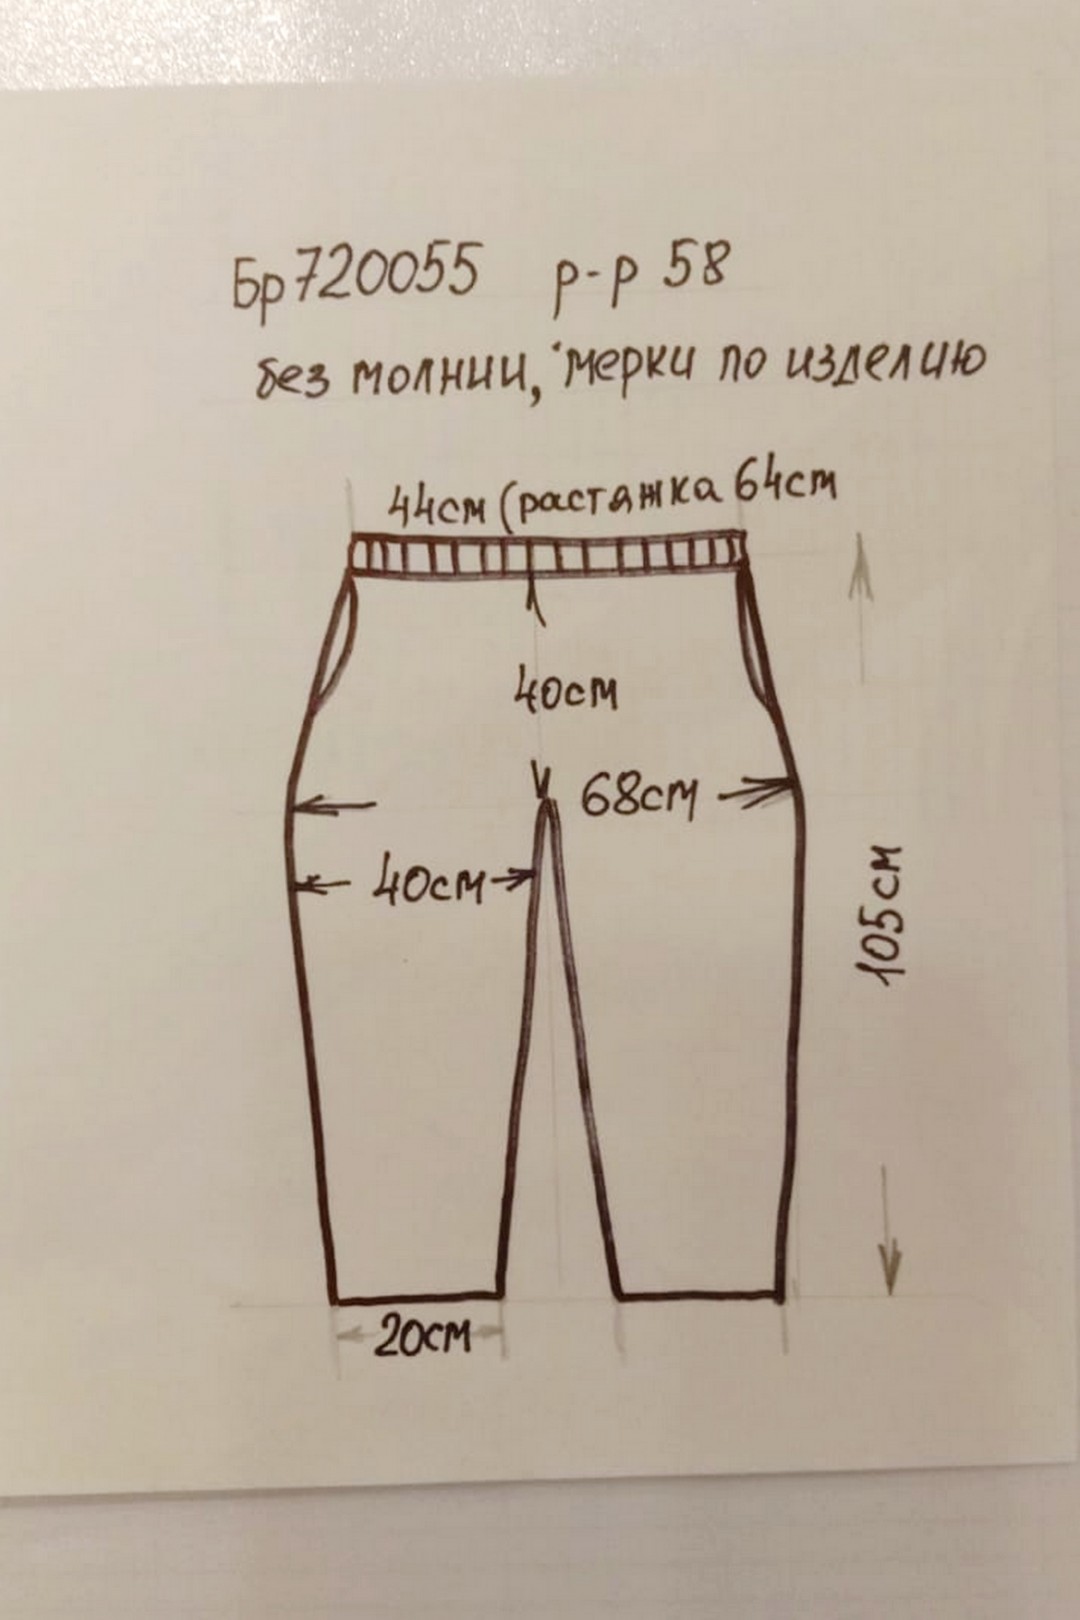 Бр720055 р-р 58
без молнии, мерки по изделию
44см (растяжка 64см
40см
68см
40см
105см
20см